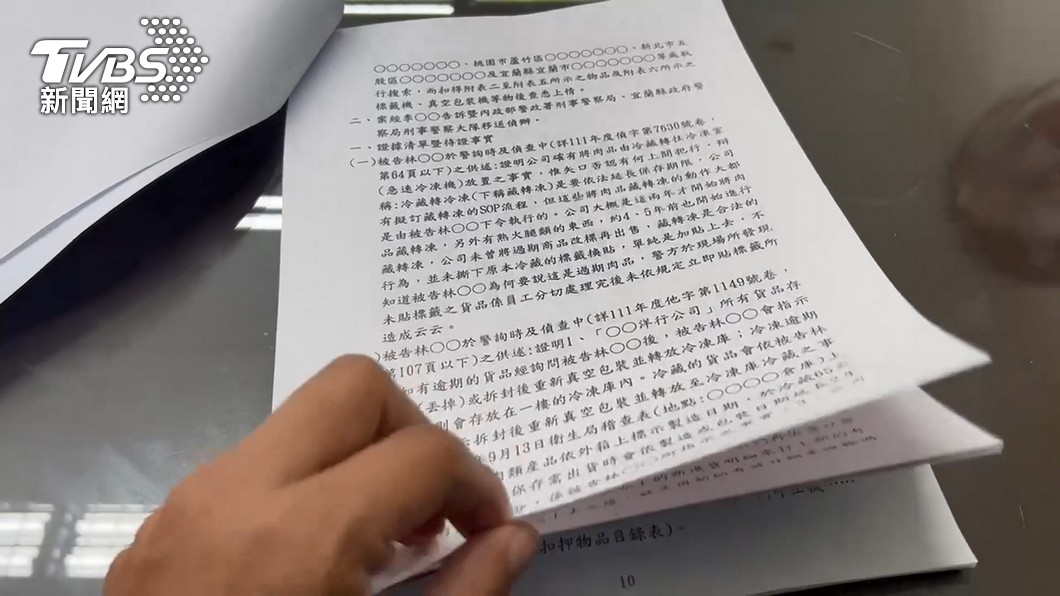 TVBS
新聞網
○○○○○○○、桃園市蘆竹區○○○○○○○、新北市五
股區○○○○○○○及宜蘭縣宜蘭市○○○○○○等處執
行搜索，而扣得附表二至附表五所示之物品及附表六所示之
標籤機、真空包裝機等物後查悉上情。
二、案經李○○告訴暨內政部警政署刑事警察局、宜蘭縣政府警
察局刑事警察大隊移送偵辦。
一、證據清單暨待證事實
(一)被告林○○於警詢時及偵查中(詳111年度偵字第7630號卷，
第64頁以下)之供述：證明公司確有將肉品由冷藏轉往冷凍室
(急速冷凍機)放置之事實，惟矢口否認有何上開犯行，辯
稱：冷藏轉冷凍(下稱藏轉凍)是要依法延長保存期限，公司
有擬訂藏轉凍的SOP流程，但這些將肉品藏轉凍的動作大都
是由被告林○○下令執行的。公司大概是這兩年才開始將肉
品藏轉凍，另外有熟火腿類的東西，約4、5年前也開始進行
藏轉凍，公司未曾將過期商品改標再出售，藏轉凍是合法的
行為，並未撕下原本冷藏的標籤換貼，單純是加貼上去，不
知道被告林○○為何要說這是過期肉品，警方於現場所發現
未貼標籤之貨品係員工分切處理完後未依規定立即貼標籤所
造成云云。
)被告林○○於警詢時及偵查中(詳111年度他字第1149號卷，
第107頁以下)之供述：證明1、「○○洋行公司」所有貨品存
如有逾期的貨品經詢問被告林○○後，被告林○○會指示
(丟掉)或拆封後重新真空包裝並轉放冷凍庫；冷凍逾期
則會存放在一樓的冷凍庫內。冷藏的貨品會依被告林
示拆封後重新真空包裝並轉放至冷凍庫冷藏之事
9月13日衛生局稽查表(地點：○○○○倉庫)上
肉類產品依外箱上標示製造日期，於冷藏65
保存需出貨時會依製造或包裝日期延長2
扣押物品目錄表)。
10